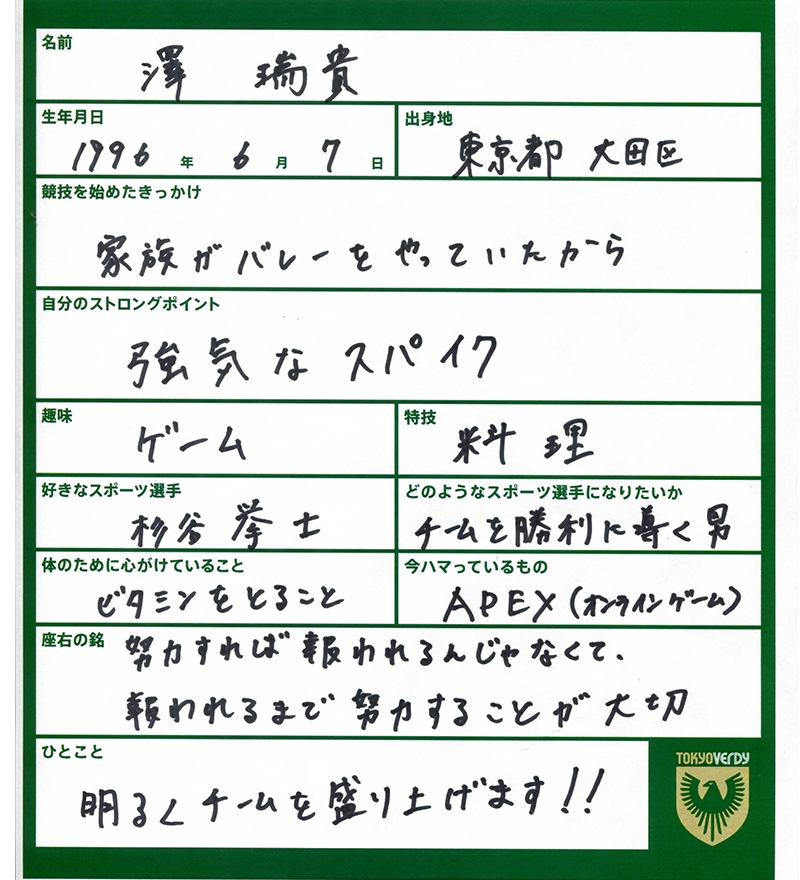 名前
澤 瑞貴
生年月日
1996年 6月 7日
出身地
東京都 大田区
競技を始めたきっかけ
家族がバレーをやっていたから
自分のストロングポイント
強気なスパイク
趣味
ゲーム
特技
料理
好きなスポーツ選手
杉谷 拳士
どのようなスポーツ選手になりたいか
チームを勝利に導く男
体のために心がけていること
ビタミンをとること
今ハマっているもの
APEX(オンラインゲーム)
座右の銘
努力すれば報われるんじゃなくて、
報われるまで努力することが大切
ひとこと
明るくチームを盛り上げます!!
TOKYO VERDY